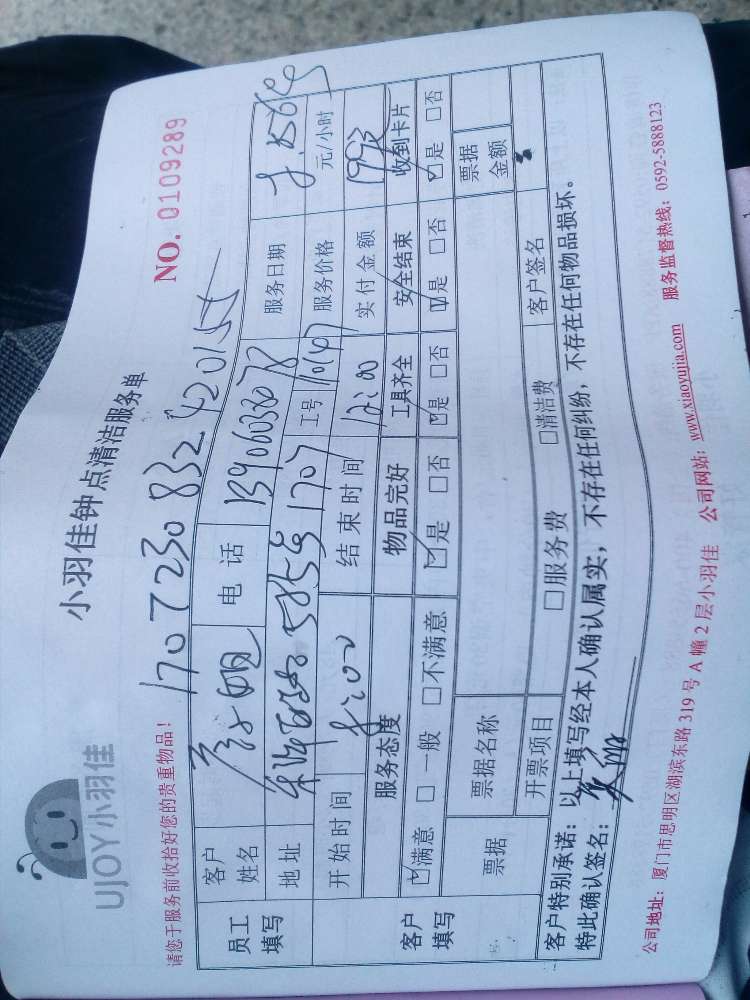 UJOY小羽佳
小羽佳钟点清洁服务单
请您于服务前收拾好您的贵重物品！
NO. 0109289
170723083242015
员工填写
客户姓名
电话 13906038078
服务日期
地址 585号1707
工号 10147
服务价格 元/小时
开始时间 8:00
结束时间 12:00
实付金额
客户填写
服务态度 物品完好 工具齐全 安全结束 收到卡片
☑满意 □一般 □不满意 ☑是 □否 ☑是 □否 ☑是 □否 ☑是 □否
票据
票据名称
票据金额
开票项目 □服务费 □清洁费
客户签名
客户特别承诺：以上填写经本人确认属实，不存在任何纠纷，不存在任何物品损坏。
特此确认签名：
公司地址：厦门市思明区湖滨东路319号A幢2层小羽佳 公司网站：www.xiaoyujia.com 服务监督热线：0592-5888123